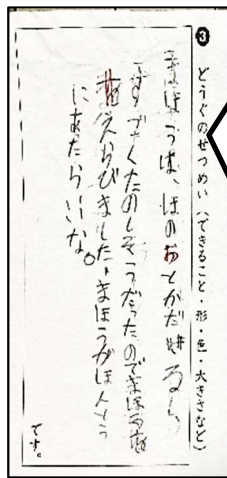 ❸ どうぐのせつめい(できること・形・色・大きさなど)
まほうは、ほのおとかだせるし
すごくたのしそうだったのでまほうを
えらびました。まほうがほんとう
にあったらいいな。
です。